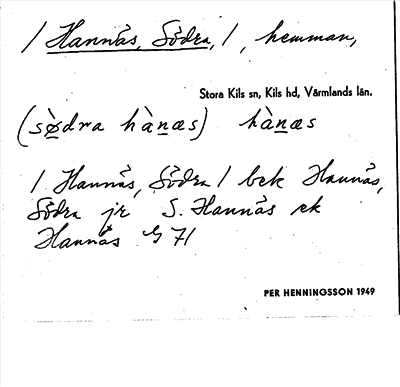 / Hannäs, Södra, /, hemman,
Stora Kils sn, Kils hd, Värmlands län.
(sødra hànæs) hànæs
/ Hannäs, Södra / bek Hannäs,
Södra jr S. Hannäs ek
Hannäs G 71
PER HENNINGSSON 1949